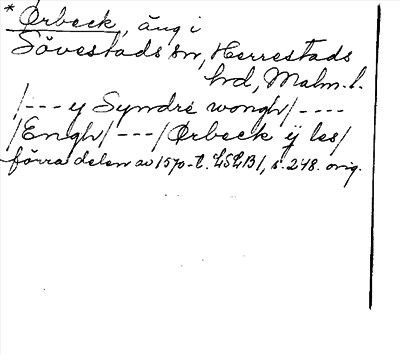 * Ørbeck, äng i
Sövestads sn, Herrestads
hrd, Malm. l.
/--- ÿ Syndre wongh/----
/Engh/---/Ørbeck ÿ les/
förra delen av 1570-t. LSLB1, s. 248. orig.